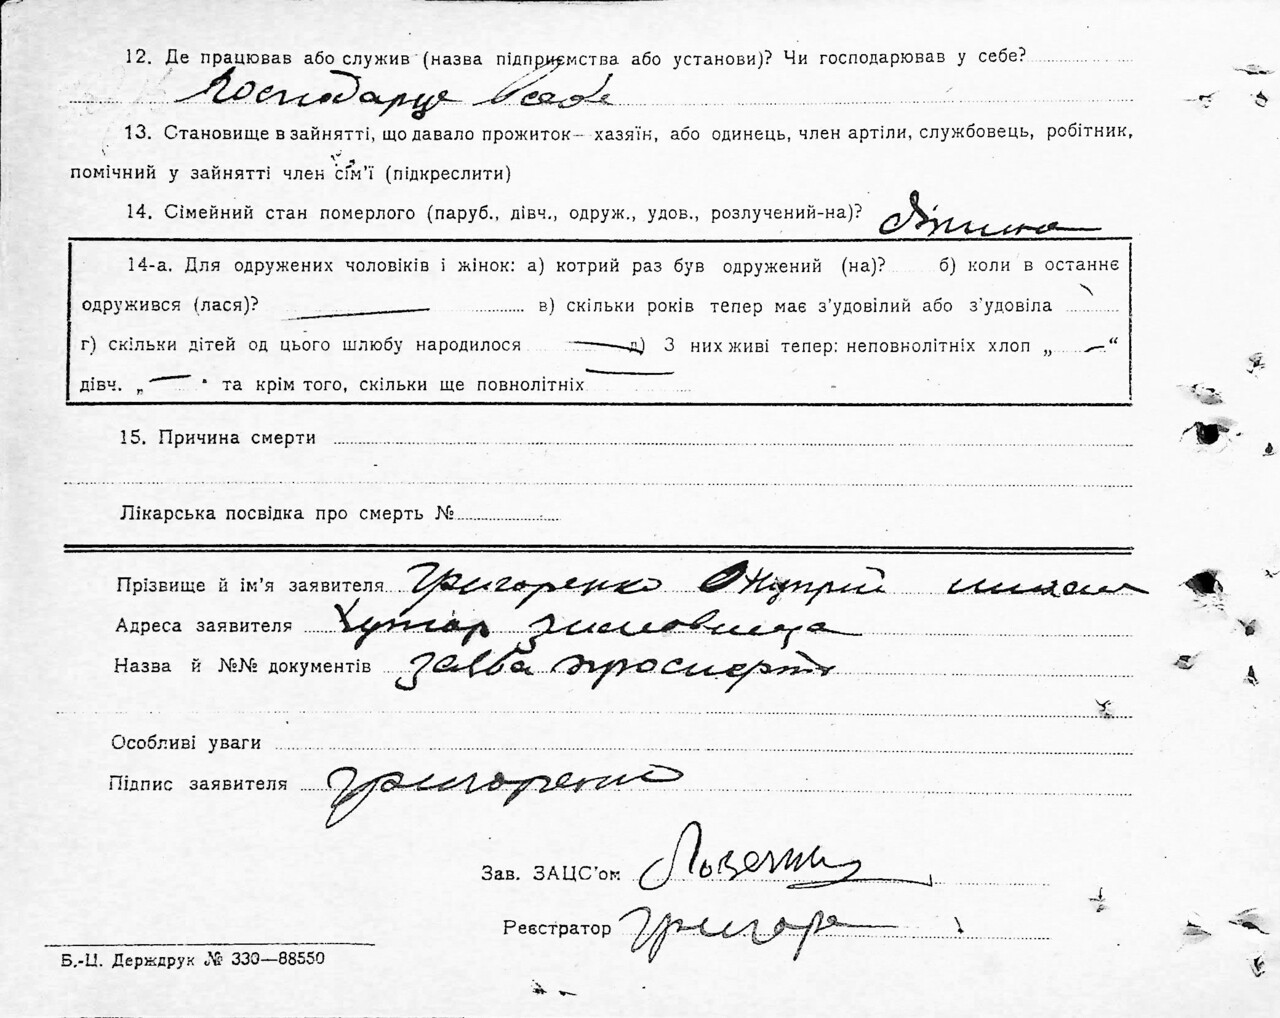 12. Де працював або служив (назва підприємства або установи)? Чи господарював у себе?
Господарце Усебе
13. Становище в зайнятті, що давало прожиток— хазяїн, або одинець, член артіли, службовець, робітник,
помічний у зайнятті член сім'ї (підкреслити)
14. Сімейний стан померлого (паруб., дівч., одруж., удов., розлучений-на)?
14-а. Для одружених чоловіків і жінок: а) котрий раз був одружений (на)? б) коли в останнє
одружився (лася)? в) скільки років тепер має з'удовілий або з'удовіла
г) скільки дітей од цього шлюбу народилося д) З них живі тепер: неповнолітніх хлоп „ — “
дівч. „ — " та крім того, скільки ще повнолітніх
15. Причина смерти
Лікарська посвідка про смерть №
Прізвище й ім'я заявителя Григоренко
Адреса заявителя Хутор
Назва й №№ документів заява просмерть
Особливі уваги
Підпис заявителя Григоренко
Зав. ЗАЦС'ом
Реєстратор Григоре
Б.-Ц. Держдрук № 330—88550